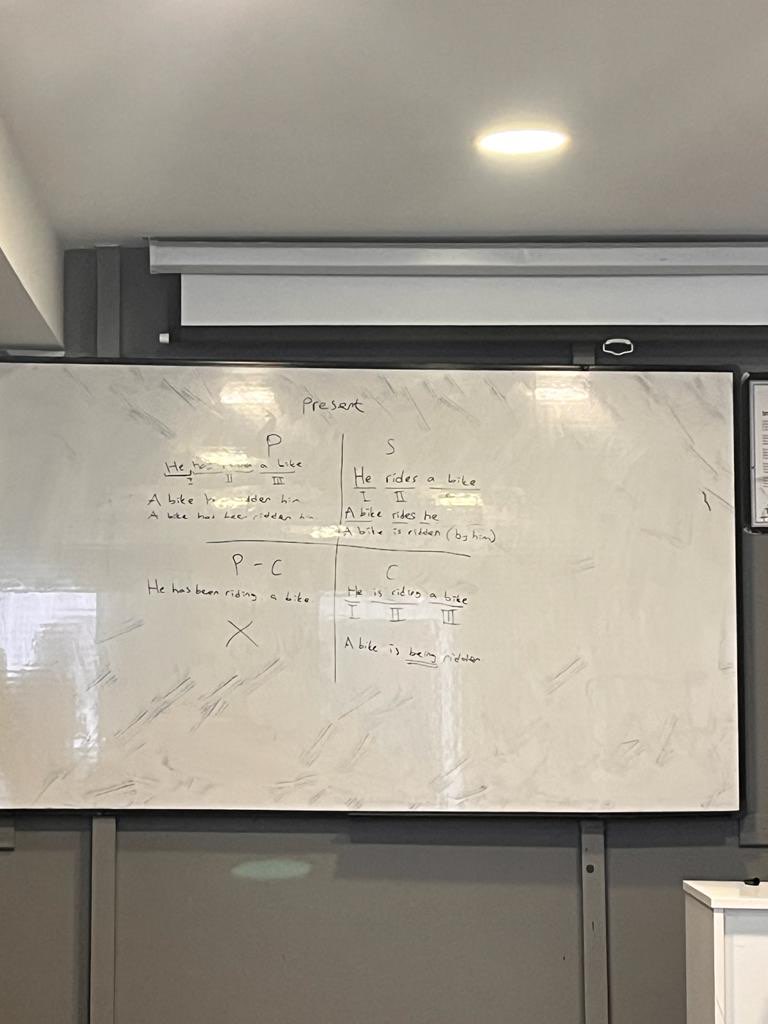 Present
P
He has a bike
I II III
A bike ridden him
A bike has been ridden him
S
He rides a bike
I II
A bike rides he
A bike is ridden (by him)
P - C
He has been riding a bike
X
C
He is riding a bike
I II III
A bike is being ridden